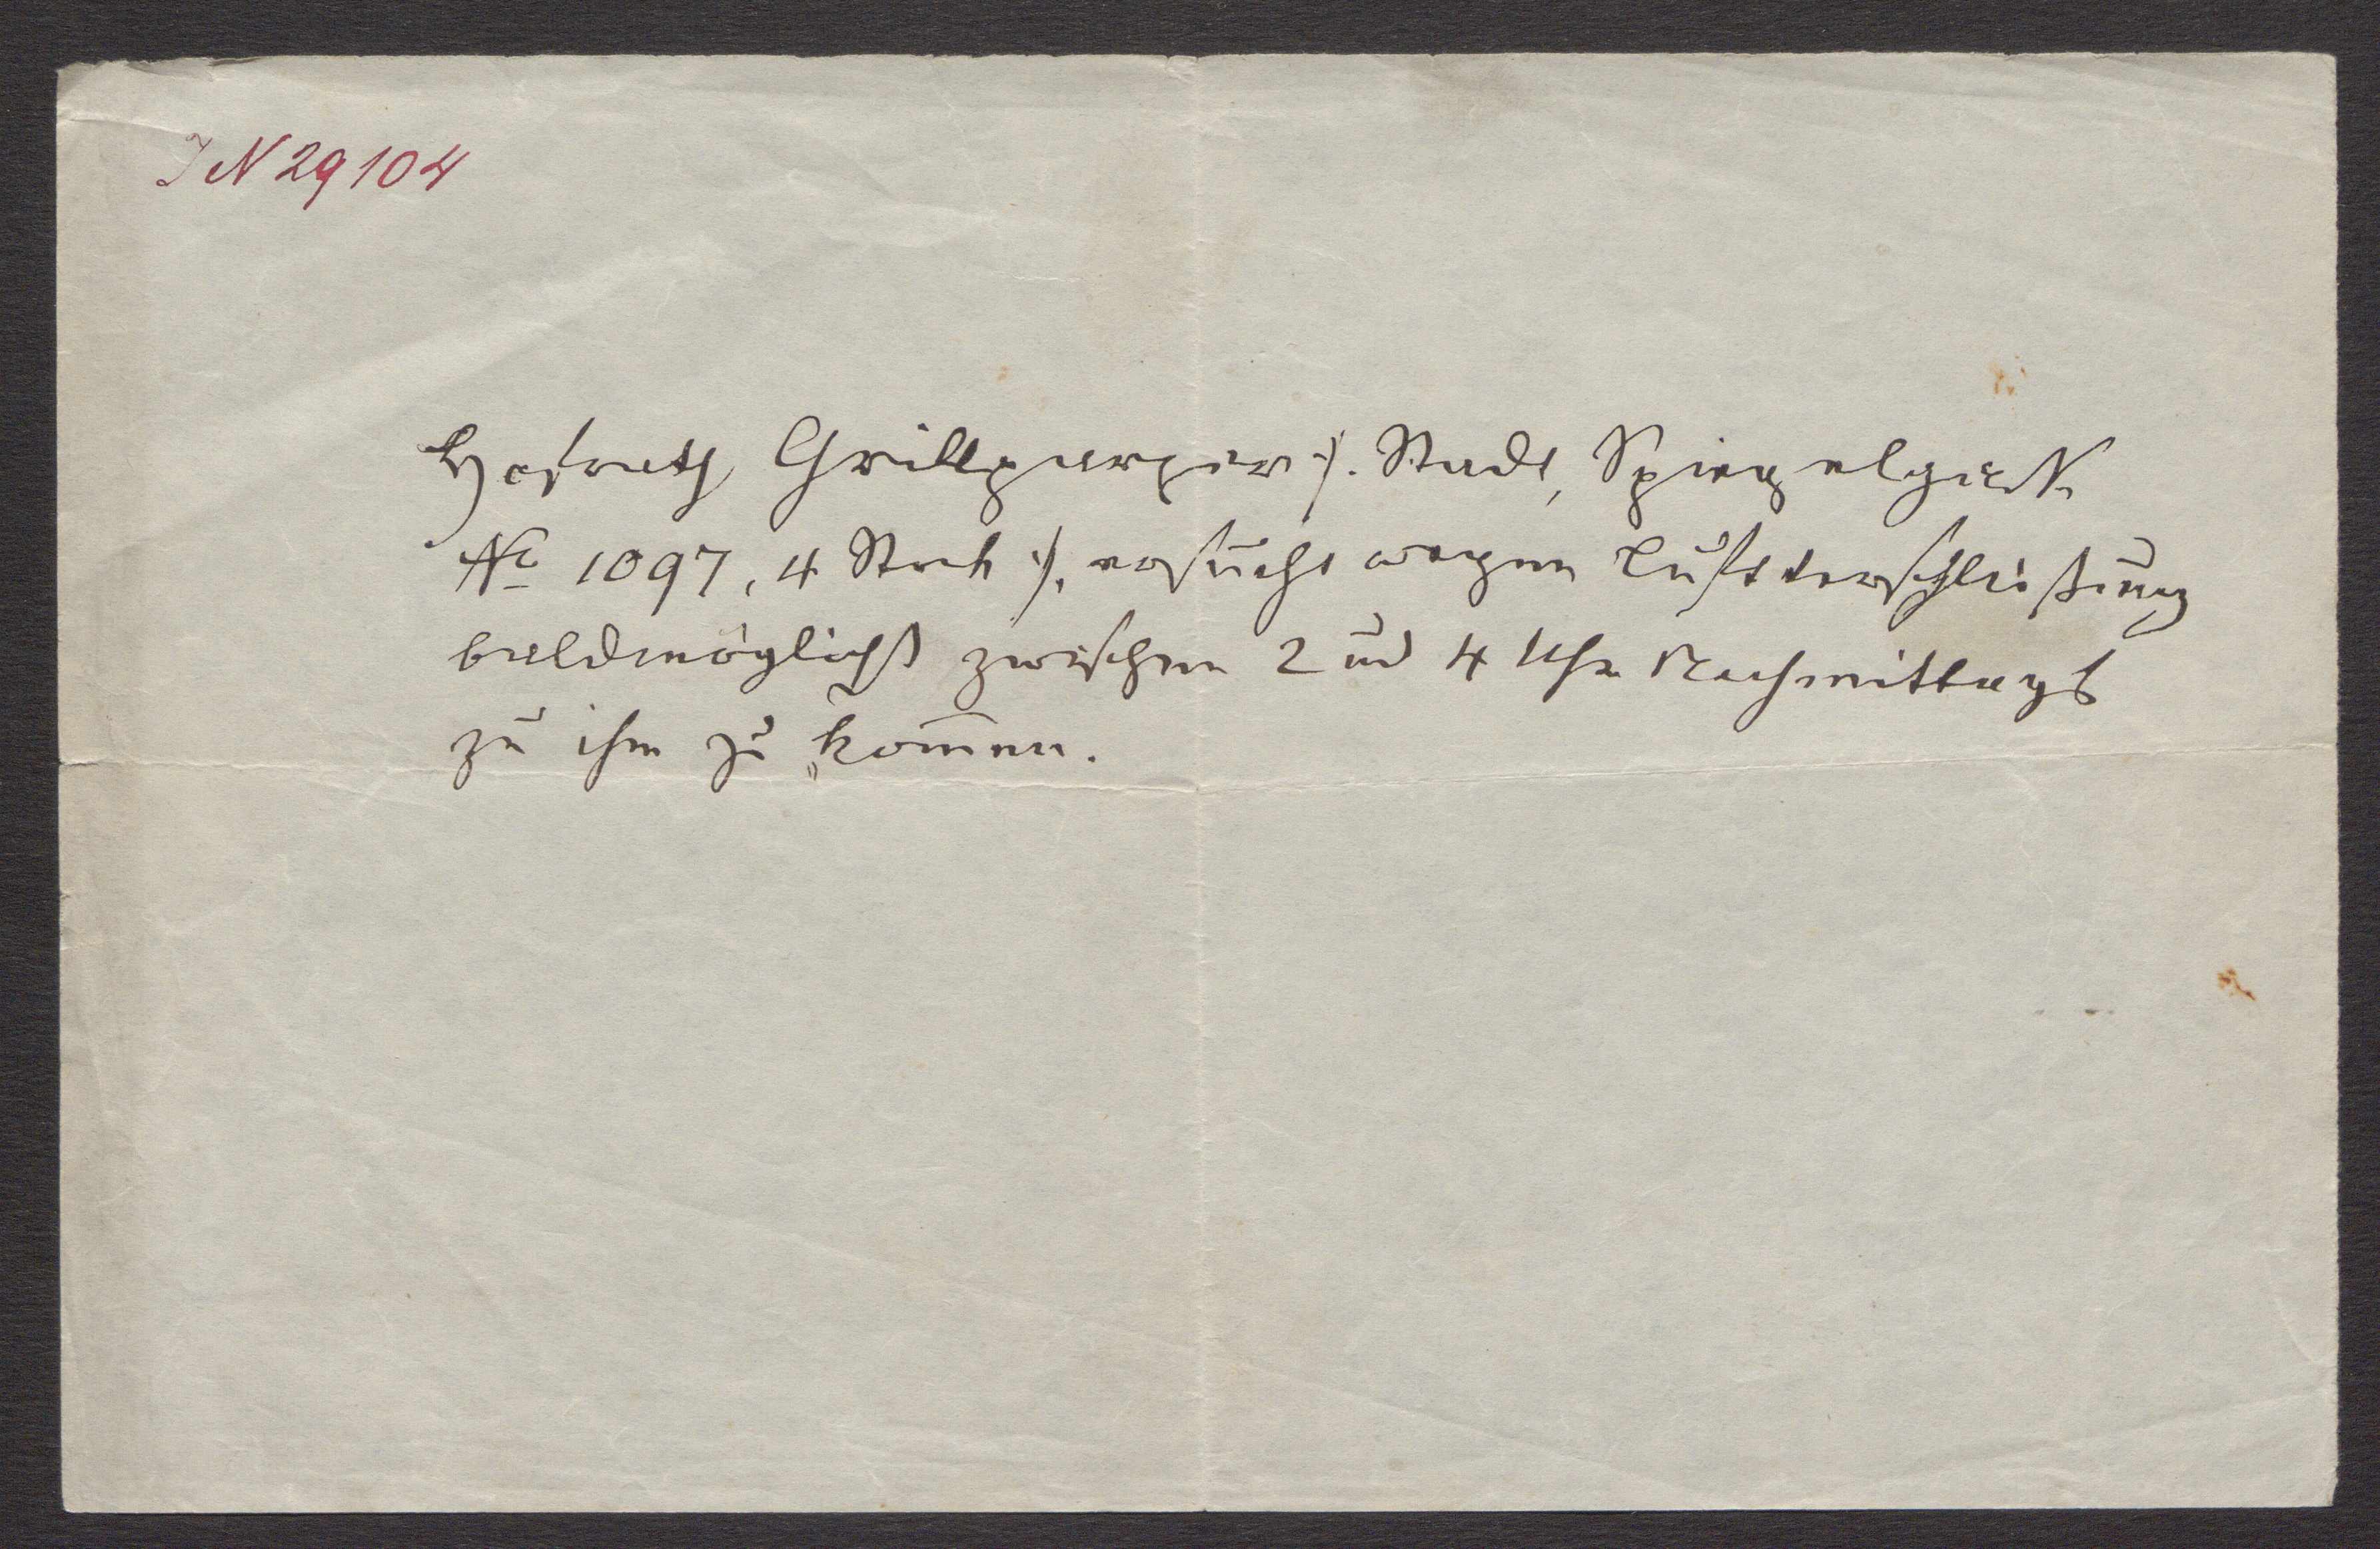 IN 29104
Hofrath Grillparzer /:. Stadt, Spiegelgasse
No 1097, 4 Stock :/. ersucht wegen
baldmöglichst zwischen 2 und 4 Uhr Nachmittags
zu ihm zu kom̄en.